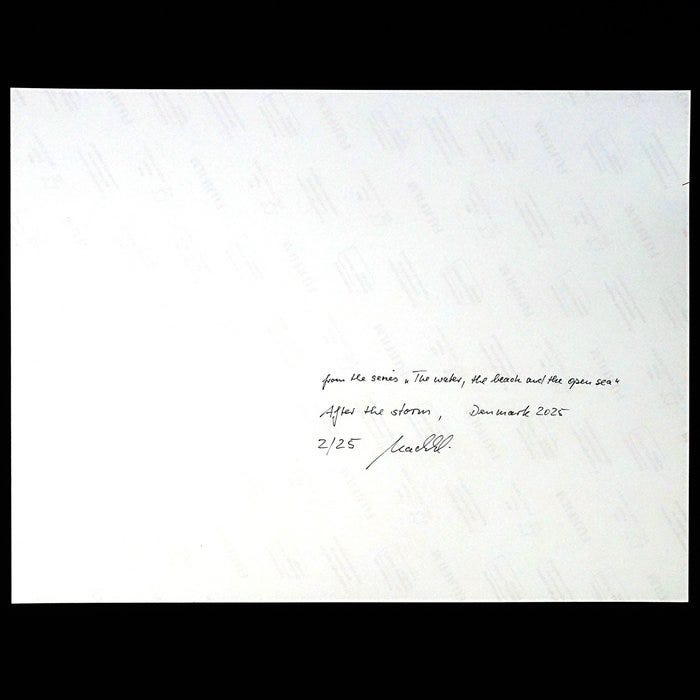 from the series „The water, the beach and the open sea“
After the storm, Denmark 2025
2/25